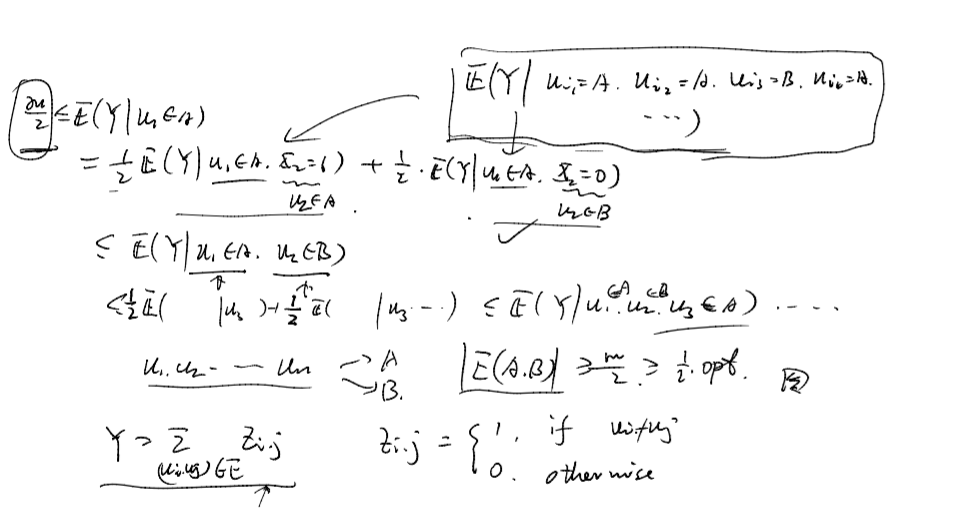 E(Y| u_{i1}=A. u_{i2}=A. u_{i3}=B. u_{i4}=A.
...)
m/2 ≤ E(Y|u₁∈A)
= 1/2 E(Y|u₁∈A. X₂=1) + 1/2 · E(Y|u₁∈A. X₂=0)
u₂∈A. u₂∈B
≤ E(Y|u₁∈A. u₂∈B)
≤ 1/2 E( |u₃ ) + 1/2 E( |u₃ ...) ≤ E(Y|u₁∈A. u₂∈B. u₃∈A) .....
u₁. u₂ - - - uₙ → A → B. |E(A.B)| ≥ m/2 ≥ 1/2 · opt.
Y = Σ_{(ui,uj)∈E} Zi.j Zi.j = { 1. if ui≠uj
0. otherwise